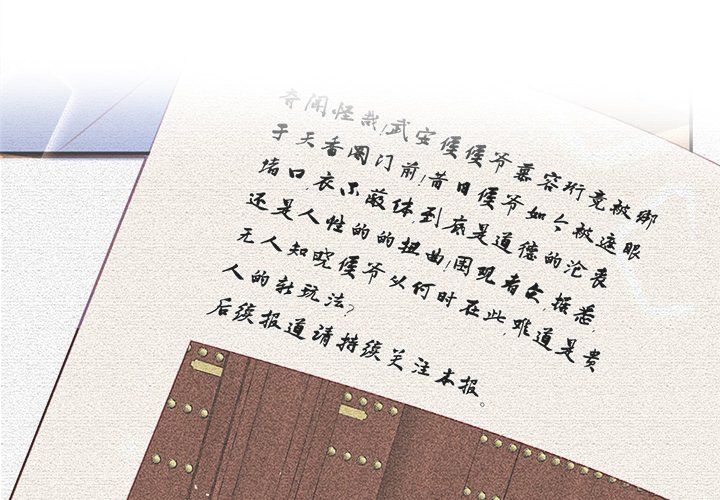 奇闻怪哉!武安侯侯爷慕容珩竟被绑
于天香阁门前!昔日侯爷如今被遮眼
堵口,衣不蔽体,到底是道德的沦丧
还是人性的的扭曲!围观者众,据悉,
无人知晓侯爷从何时在此,难道是贵
人的新玩法?
后续报道请持续关注本报。